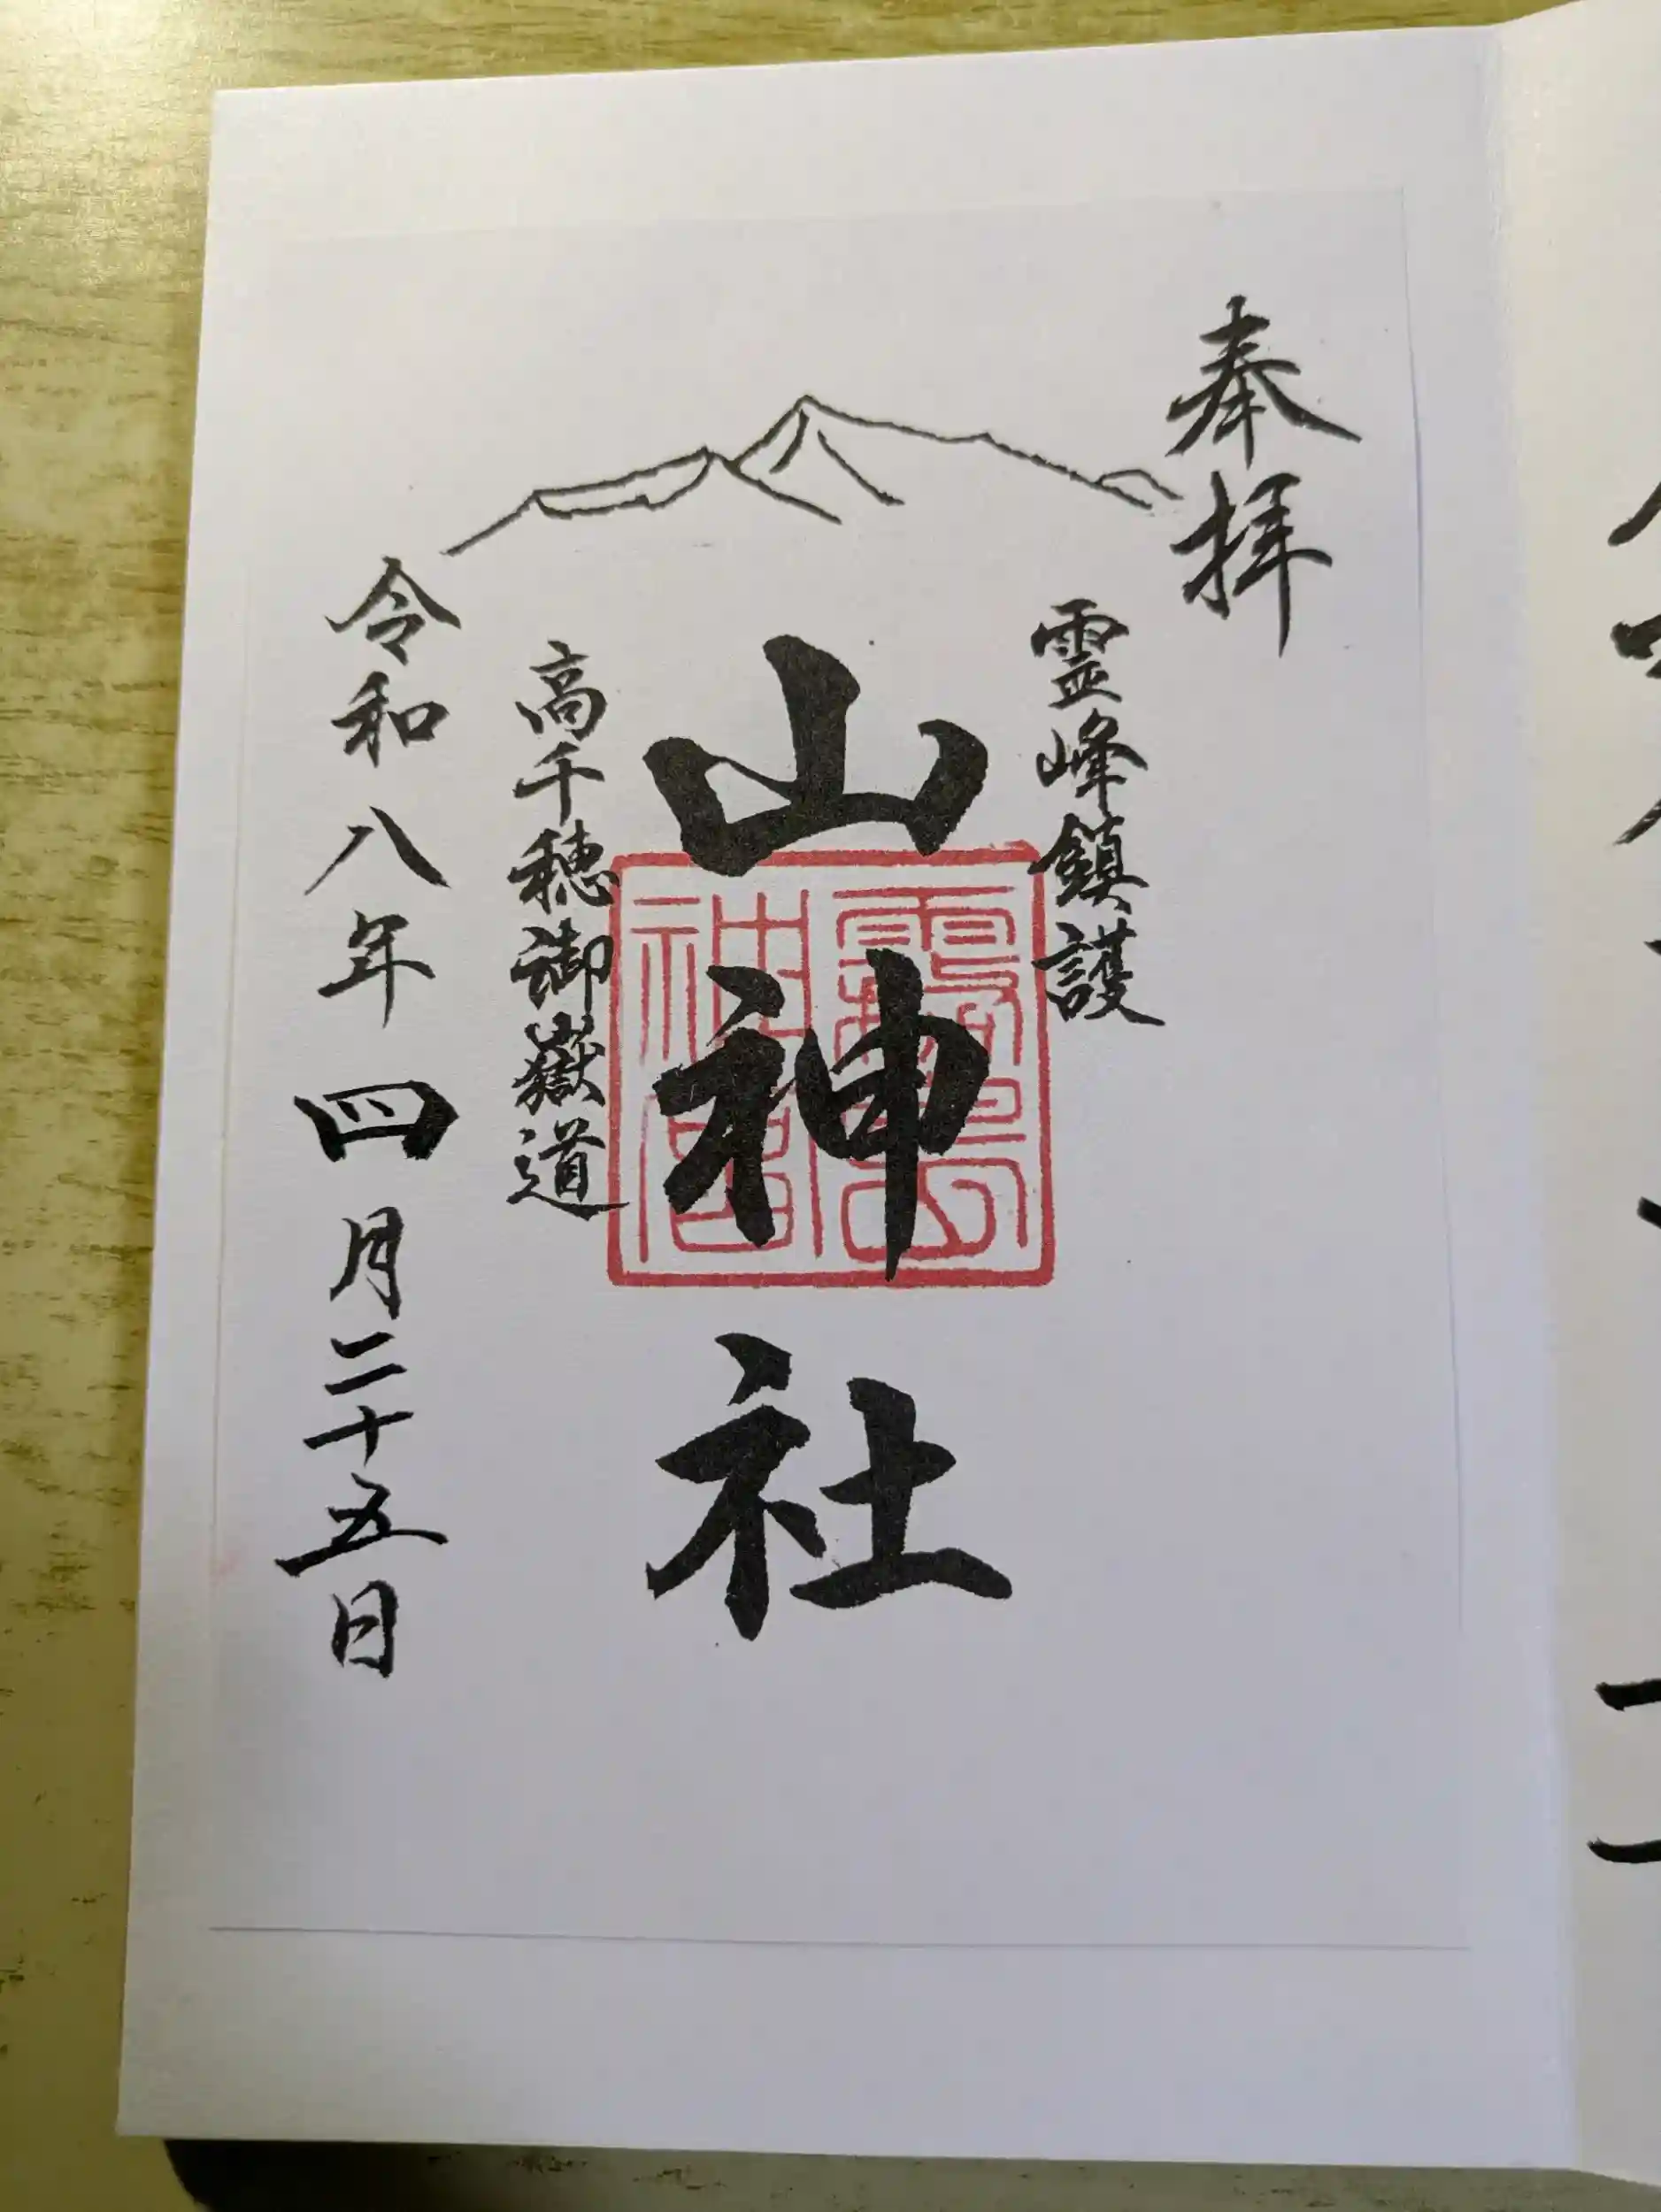 奉拝
霊峰鎮護
山神社
霧島神宮
高千穂御嶽道
令和八年四月二十五日